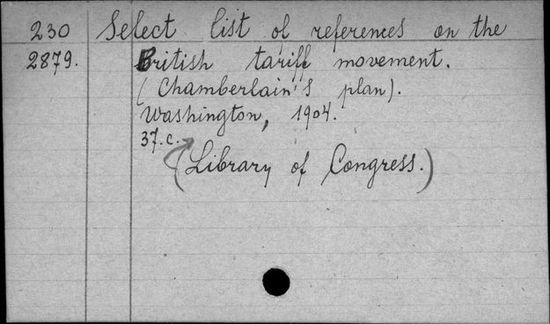 230 Select list of references on the
2879. British tariff movement.
(Chamberlain's plan).
Washington, 1904.
37.c.
(Library of Congress.)